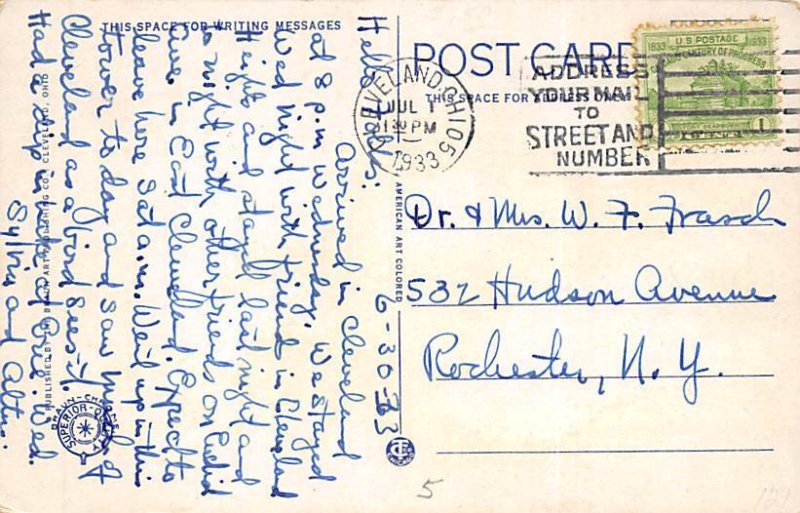 THIS SPACE FOR WRITING MESSAGES
6-30-33
Hello Folks:
Arrived in Cleveland
at 8 p.m. Wednesday. We stayed
Wed night with friend in Cleveland
Heights and stayed last night and
to night with other friends on Euclid
Aves. in East Cleveland. Expect to
leave here Sat a.m. Went up in this
tower to day and saw much of
Cleveland as a bird sees it.
Had a dip in Lake Erie Wed.
Sylvia and
PUBLISHED BY THE BRAUN ART PUBLISHING CO., CLEVELAND, OHIO
BRAUN-CHROME
SUPERIOR-QUALITY
AMERICAN ART COLORED
POST CARD
THIS SPACE FOR ADDRESS ONLY
CLEVELAND, OHIO
JUL 1
1 30 PM
1933
ADDRESS
YOUR MAIL
TO
STREET AND
NUMBER
U.S. POSTAGE
1833 CENTURY OF PROGRESS 1933
1
Dr. & Mrs. W. F. Frasch
532 Hudson Avenue
Rochester, N. Y.
5